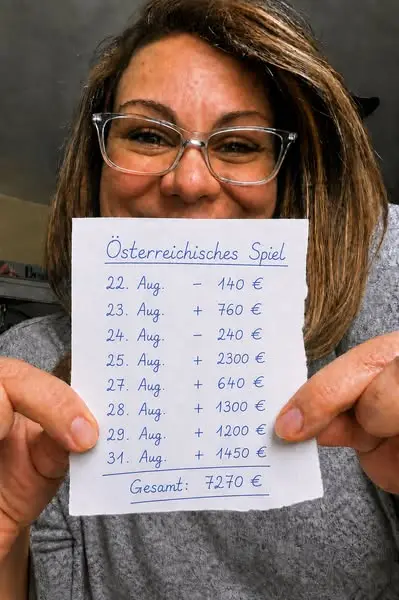 Österreichisches Spiel
22. Aug. - 140 €
23. Aug. + 760 €
24. Aug. - 240 €
25. Aug. + 2300 €
27. Aug. + 640 €
28. Aug. + 1300 €
29. Aug. + 1200 €
31. Aug. + 1450 €
Gesamt: 7270 €